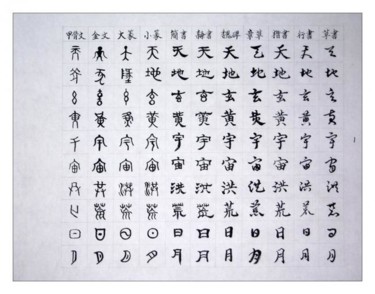 甲骨文 金文 大篆 小篆 簡書 隸書 魏碑 章草 楷書 行書 草書
天 天 天 天 天 天 天 天 天 天 天
地 地 地 地 地 地 地 地 地 地 地
玄 玄 玄 玄 玄 玄 玄 玄 玄 玄 玄
黃 黃 黃 黃 黃 黃 黃 黃 黃 黃 黃
宇 宇 宇 宇 宇 宇 宇 宇 宇 宇 宇
宙 宙 宙 宙 宙 宙 宙 宙 宙 宙 宙
洪 洪 洪 洪 洪 洪 洪 洪 洪 洪 洪
荒 荒 荒 荒 荒 荒 荒 荒 荒 荒 荒
日 日 日 日 日 日 日 日 日 日 日
月 月 月 月 月 月 月 月 月 月 月